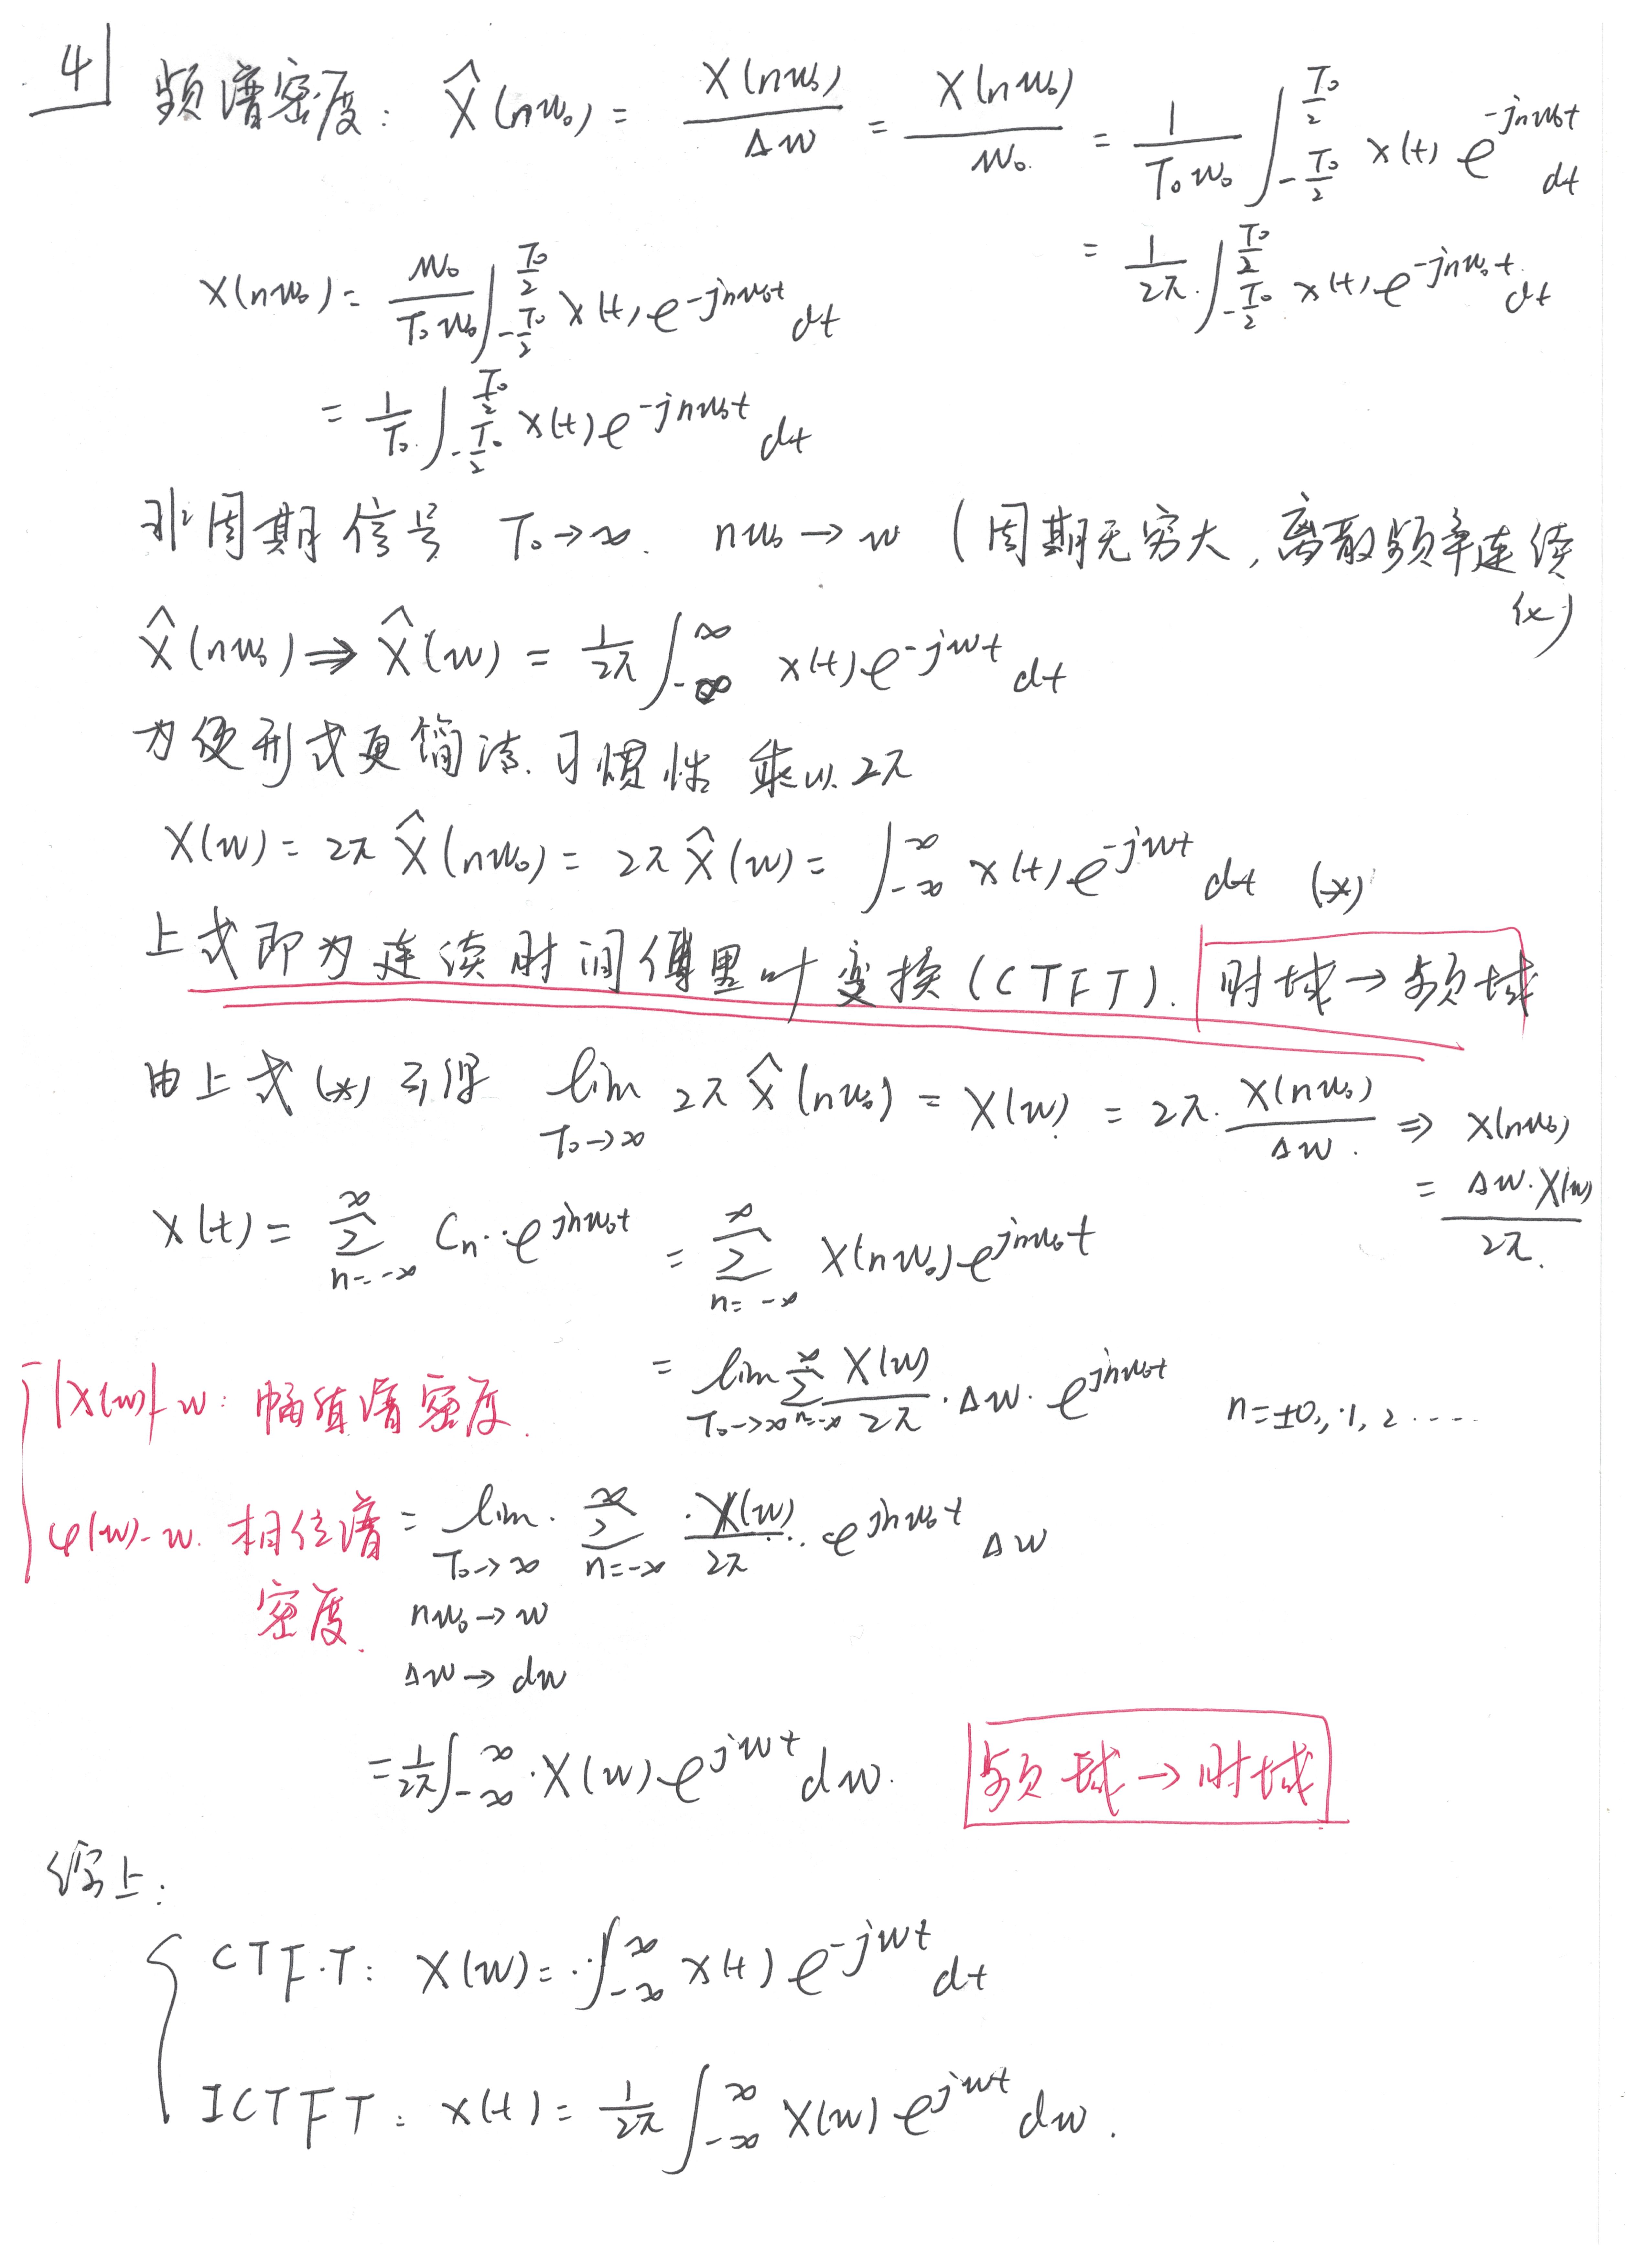 4
频谱密度: X̂(nw₀) = X(nw₀)/Δw = X(nw₀)/w₀. = 1/(T₀w₀) ∫_{-T₀/2}^{T₀/2} x(t) e^{-jnw₀t} dt
= 1/(2π) ∫_{-T₀/2}^{T₀/2} x(t) e^{-jnw₀t} dt
X(nw₀) = w₀/(T₀w₀) ∫_{-T₀/2}^{T₀/2} x(t) e^{-jnw₀t} dt
= 1/T₀ ∫_{-T₀/2}^{T₀/2} x(t) e^{-jnw₀t} dt
非周期信号 T₀→∞. nw₀→w (周期无穷大,离散频率连续
化)
X̂(nw₀) ⇒ X̂(w) = 1/(2π) ∫_{-∞}^{∞} x(t) e^{-jwt} dt
为使形式更简洁.习惯性 乘以2π
X(w) = 2π X̂(nw₀) = 2π X̂(w) = ∫_{-∞}^{∞} x(t) e^{-jwt} dt (*)
上式即为连续时间傅里叶变换(CTFT). 时域→频域
由上式(*)可得 lim_{T₀→∞} 2π X̂(nw₀) = X(w) = 2π · X(nw₀)/Δw ⇒ X(nw₀)
= Δw·X(w)/2π.
x(t) = ∑_{n=-∞}^{∞} Cₙ · e^{jnw₀t} = ∑_{n=-∞}^{∞} X(nw₀) e^{jnw₀t}
= lim_{T₀→∞} ∑_{n=-∞}^{∞} X(w)/2π · Δw · e^{jnw₀t} n=±0, 1, 2 ....
|X(w)|-w: 幅值谱密度.
φ(w)-w. 相位谱
密度.
= lim_{T₀→∞} ∑_{n=-∞}^{∞} X(w)/2π · e^{jnw₀t} Δw
nw₀→w
Δw→dw
= 1/2π ∫_{-∞}^{∞} X(w) e^{jwt} dw. 频域→时域
综上:
CTFT: X(w) = ∫_{-∞}^{∞} x(t) e^{-jwt} dt
ICTFT: x(t) = 1/2π ∫_{-∞}^{∞} X(w) e^{jwt} dw.